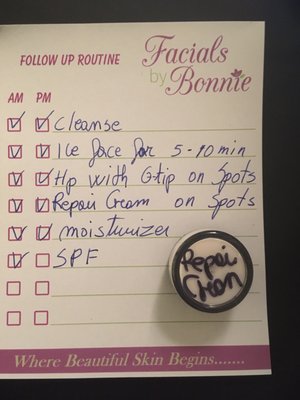 FOLLOW UP ROUTINE
Facials
by Bonnie
AM PM
Cleanse
Ice face for 5-10 min
Hp with Q-tip on Spots
Repair Cream on Spots
moisturizer
SPF
Repair
Cream
Where Beautiful Skin Begins.......